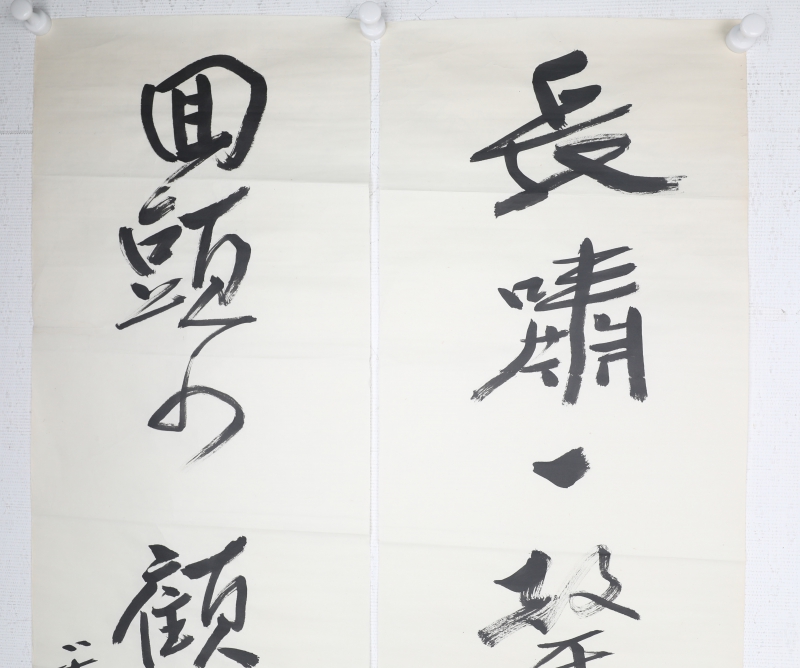 長嘯一聲
回頭不顧